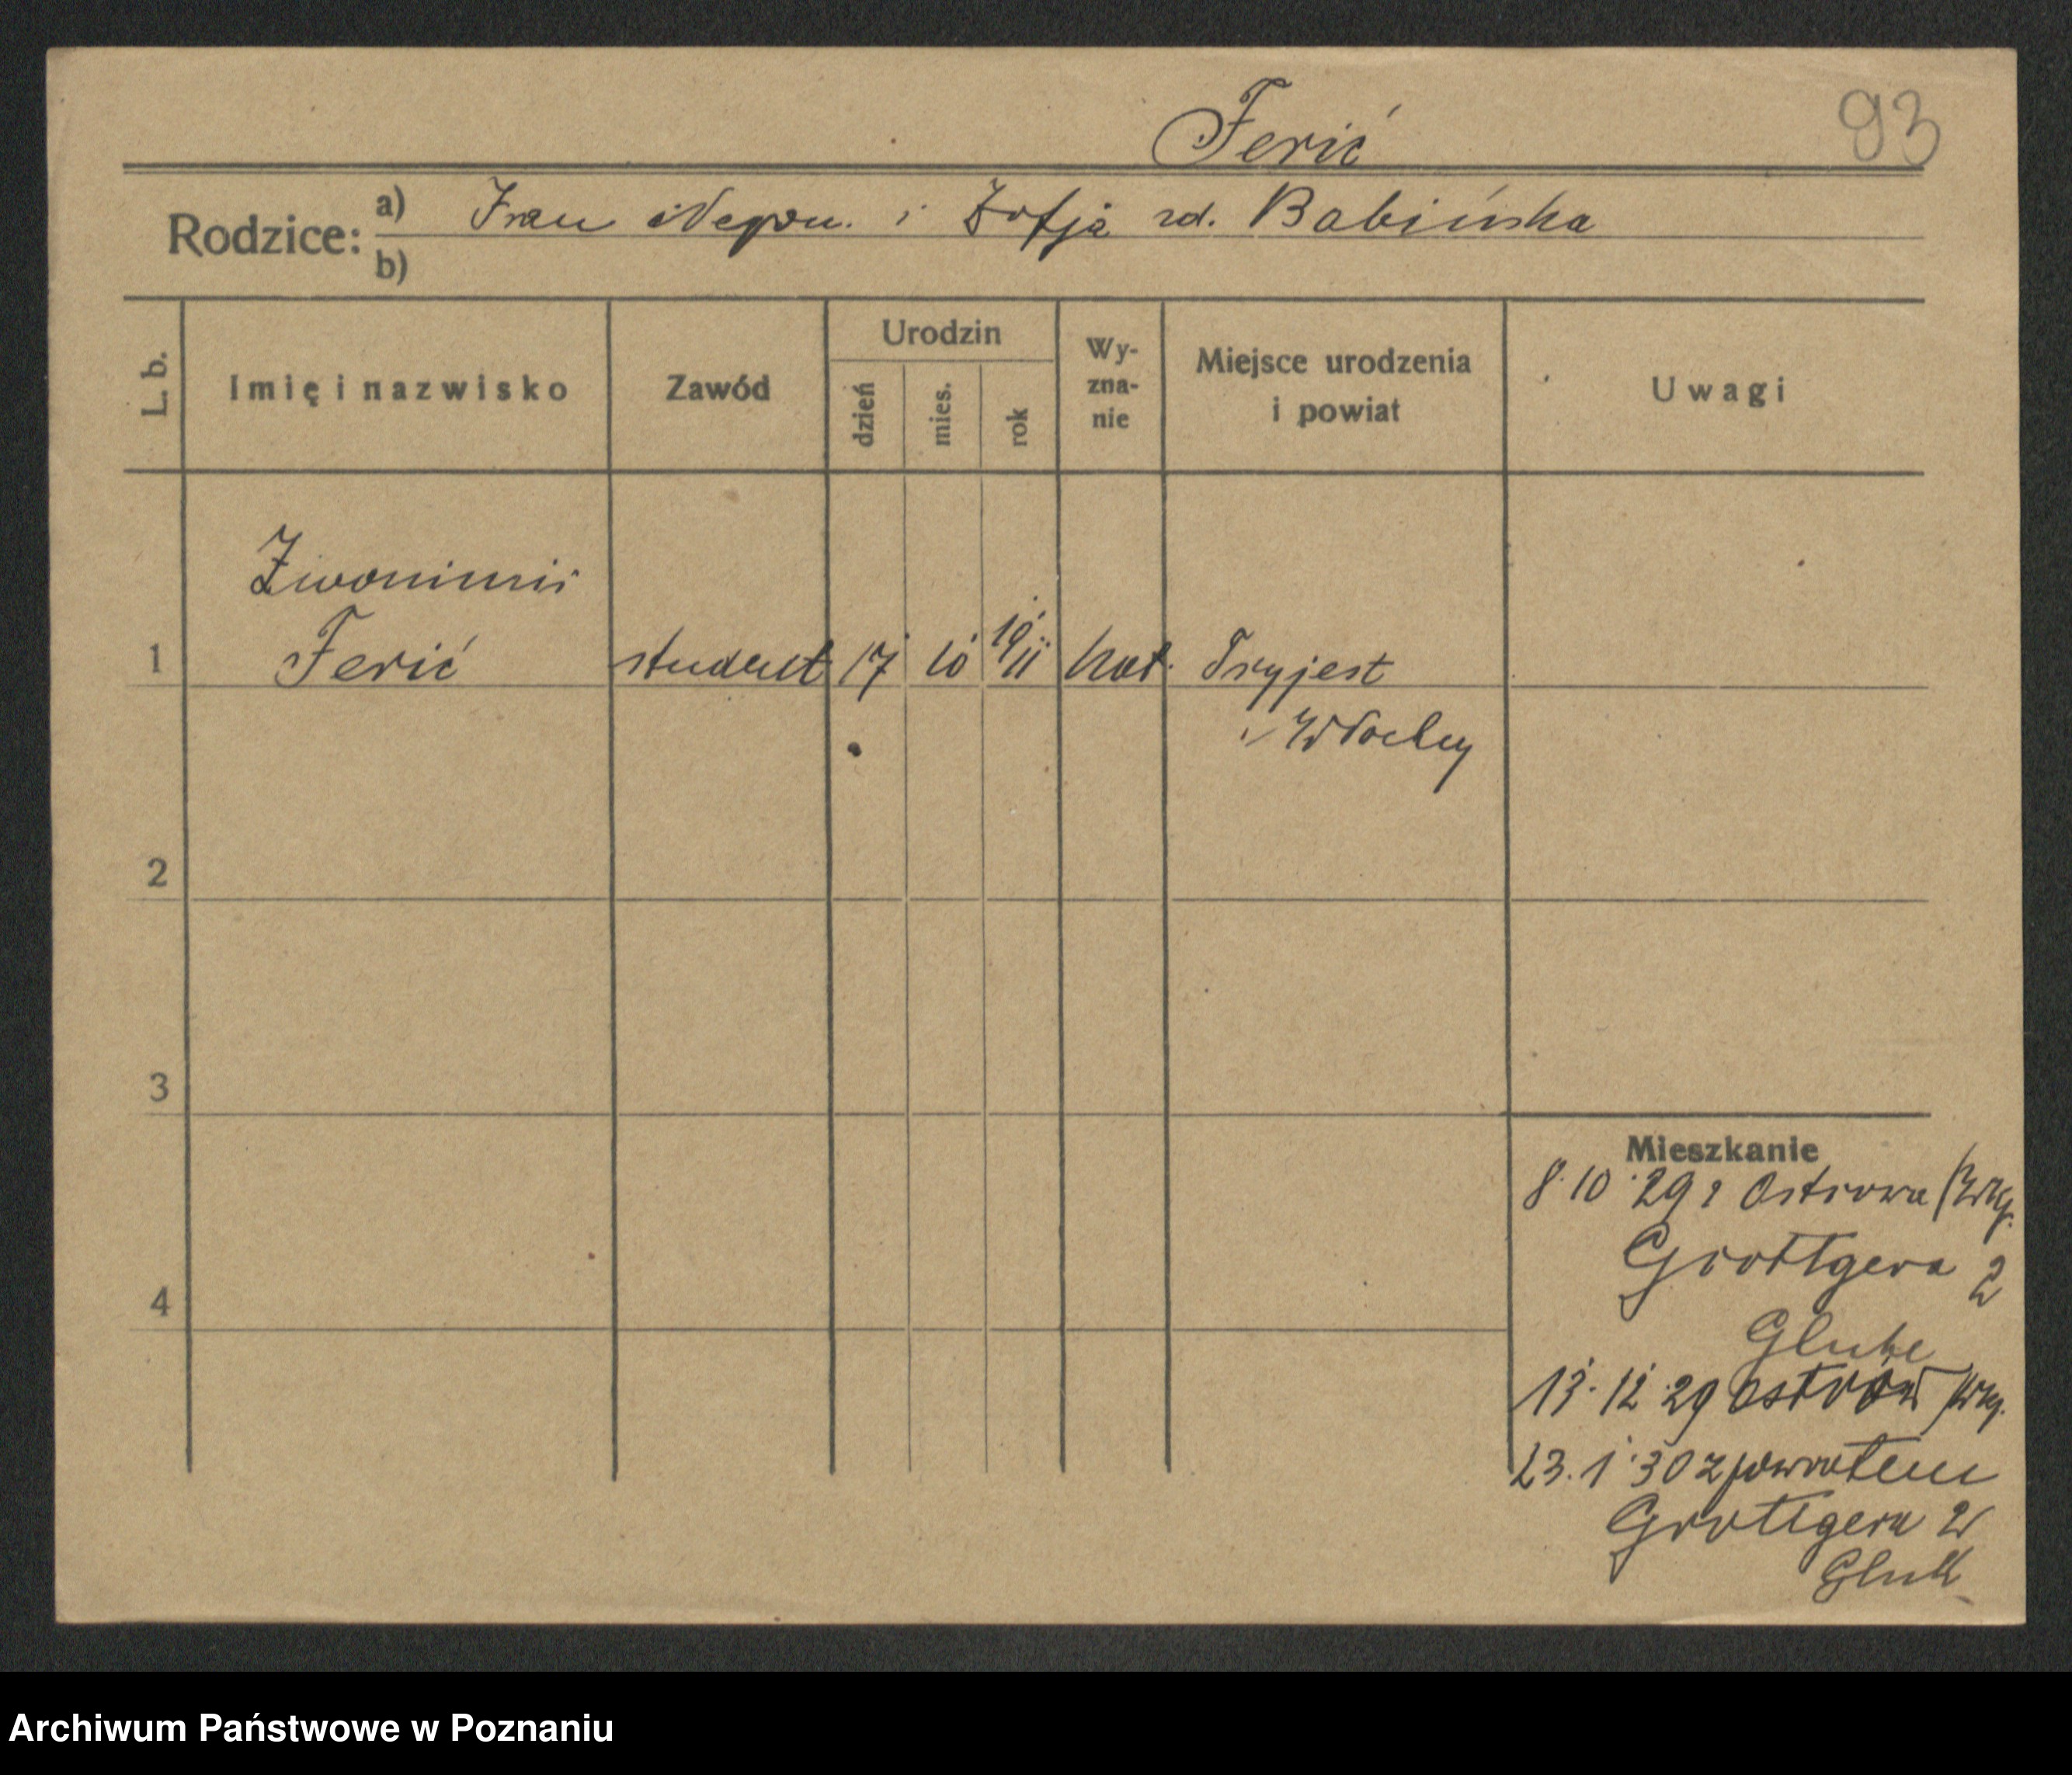 Ferić
93
Rodzice: a) Iwan Nepom. i Zofja zd. Babińska
b)
L. b.
Imię i nazwisko
Zawód
Urodzin
dzień
mies.
rok
Wy-
zna-
nie
Miejsce urodzenia
i powiat
Uwagi
Zwonimir
1 Ferić student 17 10 19 11 kat. Tryjest
Włochy
2
3
4
Mieszkanie
8.10.29 z Ostrowa /Wlkp.
Grottgera 2
13.12.29 Ostrów /Wlkp.
23.1.30 z powrotem
Grottgera 2
Archiwum Państwowe w Poznaniu